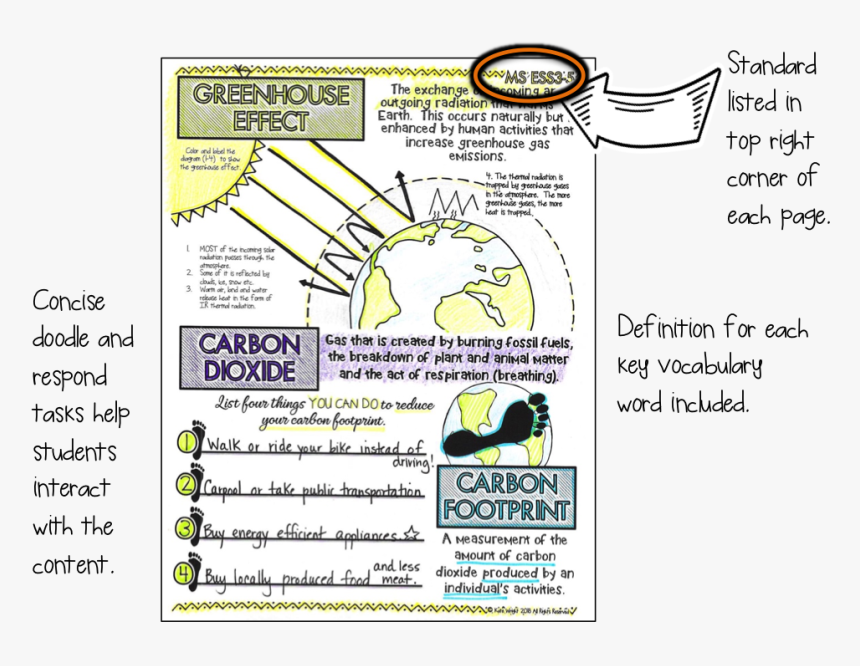 MS ESS3-5
GREENHOUSE
EFFECT
The exchange
outgoing radiation
Earth. This occurs naturally but
enhanced by human activities that
increase greenhouse gas
emissions.
Color and label the
diagram (1-4) to show
the greenhouse effect.
4. The thermal radiation is
trapped by greenhouse gases
in the atmosphere. The more
greenhouse gases, the more
heat is trapped.
1. MOST of the incoming solar
radiation passes through the
atmosphere.
2. Some of it is reflected by
clouds, ice, snow etc.
3. Warm air, land and water
release heat in the form of
IR thermal radiation.
CARBON
DIOXIDE
Gas that is created by burning fossil fuels,
the breakdown of plant and animal matter
and the act of respiration (breathing).
List four things YOU CAN DO to reduce
your carbon footprint.
1 Walk or ride your bike instead of
driving!
2 Carpool or take public transportation
3 Buy energy efficient appliances.
4 Buy locally produced food and less
meat.
CARBON
FOOTPRINT
A measurement of the
amount of carbon
dioxide produced by an
individual's activities.
2018 All Rights Reserved
Standard
listed in
top right
corner of
each page.
Concise
doodle and
respond
tasks help
students
interact
with the
content.
Definition for each
key vocabulary
word included.